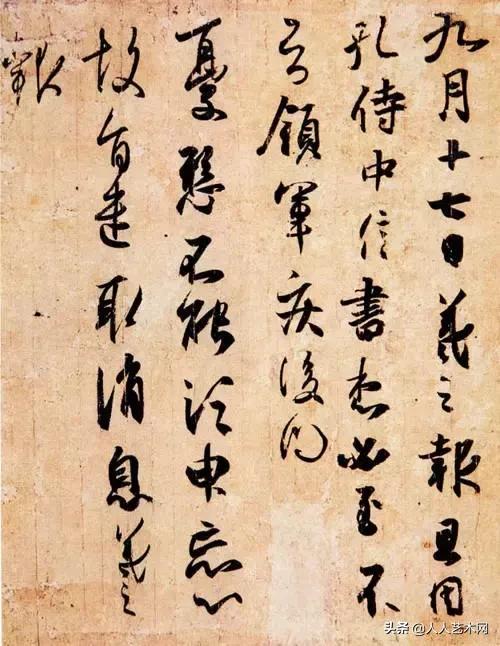 九月十七日羲之報且因
孔侍中信書想必至不
知領軍疾後問
憂懸不能須臾忘心
故旨遣取消息羲之
報
头条 @人人艺术网